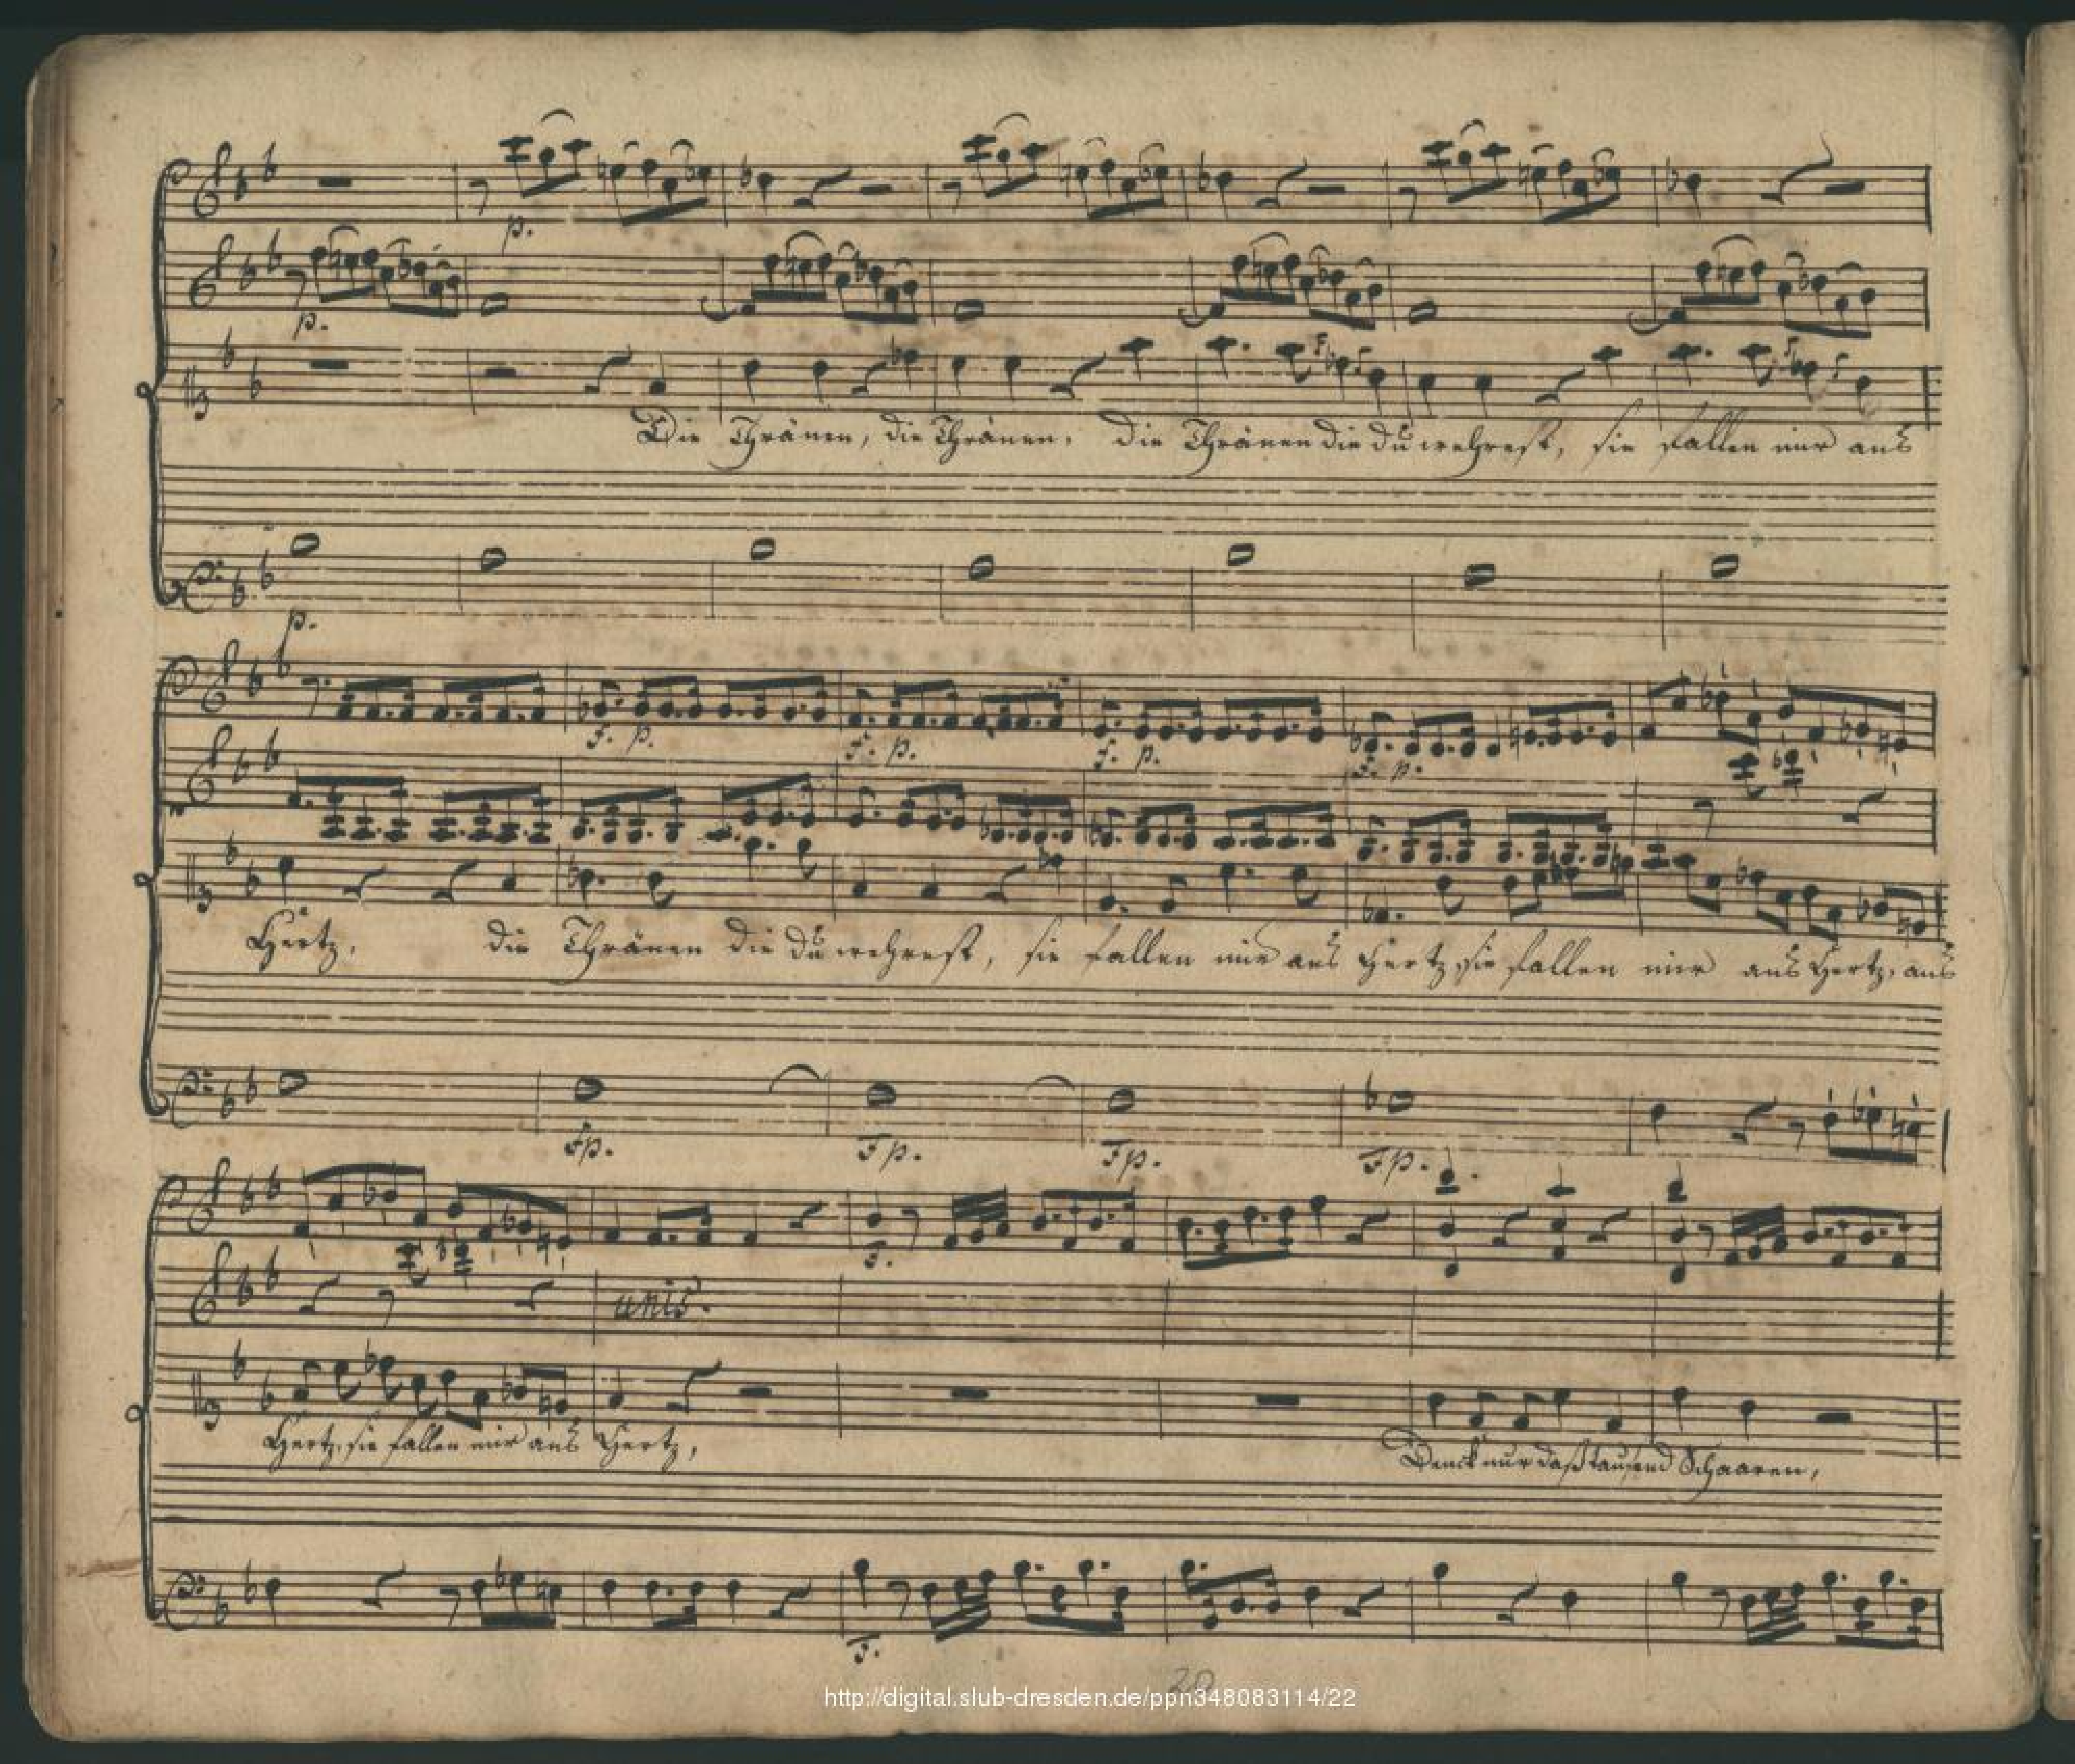 p.
p.
Die Thränen, die Thränen, die Thränen die du wehrest, sie fallen mir aus
p.
f. p. f. p. f. p. f. p.
Hertz, die Thränen die du wehrest, sie fallen mir aus Hertz, sie fallen mir aus Hertz, aus
fp. fp. fp. fp.
f.
unis.
Hertz, sie fallen mir aus Hertz, Denck nur daß tausend Schaaren,
f.
20
http://digital.slub-dresden.de/ppn348083114/22